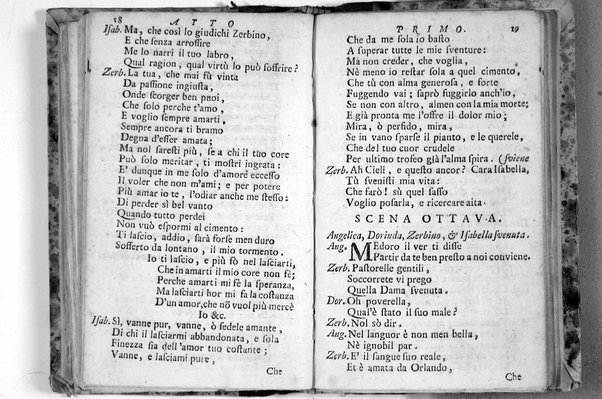 18 ATTO
Isab. Ma, che così lo giudichi Zerbino,
E che senza arrossire
Me lo narri il tuo labro,
Qual ragion, qual virtù lo può soffrire?
Zerb. La tua, che mai fù vinta
Da passione ingiusta,
Onde scorger ben puoi,
Che solo perche t'amo,
E voglio sempre amarti,
Sempre ancora ti bramo
Degna d'esser amata;
Ma nol saresti più, se a chi il tuo core
Può solo meritar, ti mostri ingrata:
E' dunque in me solo d'amore eccesso
Il voler che non m'ami; e per potere
Più amar io te, l'odiar anche me stesso:
Di perder sì bel vanto
Quando tutto perdei
Non vuò espormi al cimento:
Ti lascio, addio, sarà forse men duro
Sofferto da lontano, il mio tormento.
Io ti lascio, e più sò nel lasciarti,
Che in amarti il mio core non fè;
Perche amarti mi fè la speranza,
Ma lasciarti hor mi fa la costanza
D'un amor, che nõ vuol più mercè
Io &c.
Isab. Sì, vanne pur, vanne, ò fedele amante,
Di chi il lasciarmi abbandonata, e sola
Finezza sia dell'amor tuo costante;
Vanne, e lasciami pure,
Che
PRIMO. 19
Che da me sola io basto
A superar tutte le mie sventure:
Ma non creder, che voglia,
Nè meno io restar sola a quel cimento,
Che tù con alma generosa, e forte
Fuggendo vai; saprò fuggirlo anch'io,
Se non con altro, almen con la mia morte;
E già pronta me l'offre il dolor mio;
Mira, ò perfido, mira,
Se in vano sparse il pianto, e le querele,
Che del tuo cuor crudele
Per ultimo trofeo già l'alma spira. (sviene
Zerb. Ah Cieli, e questo ancor? Cara Isabella,
Tù svenisti mia vita:
Che farò! sù quel sasso
Voglio posarla, e ricercare aita.
SCENA OTTAVA.
Angelica, Dorinda, Zerbino, & Isabella svenuta.
Ang. MEdoro il ver ti disse
Partir da te ben presto a noi conviene.
Zerb. Pastorelle gentili,
Soccorrete vi prego
Quella Dama svenuta.
Dor. Oh poverella,
Qual'è stato il suo male?
Zerb. Nol sò dir.
Ang. Nel languor è non men bella,
Nè ignobil par.
Zerb. E' il sangue suo reale,
Et è amata da Orlando,
Che